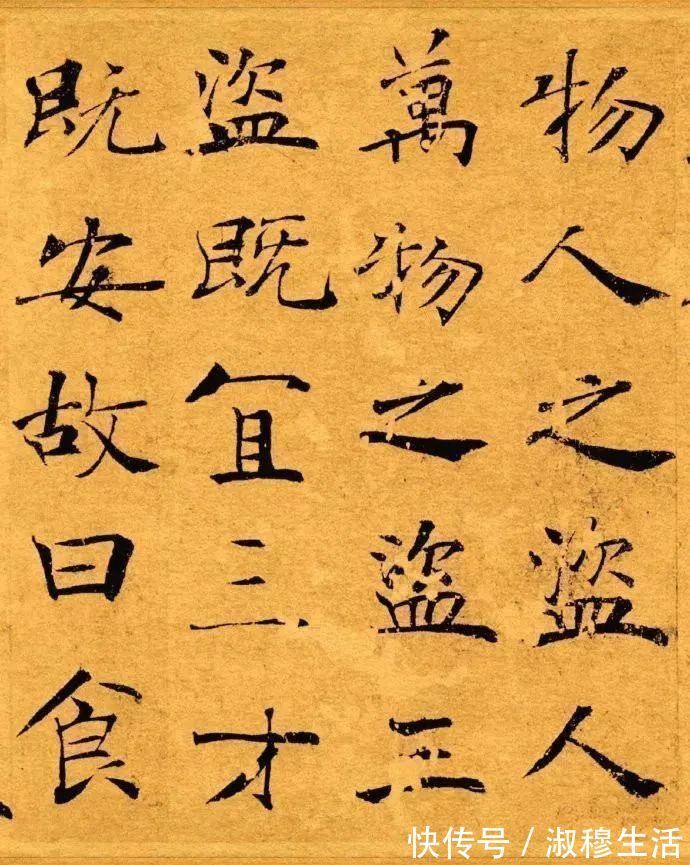 物人之盜人
萬物之盜三
盜既宜三才
既安故曰食
快传号 / 淑穆生活